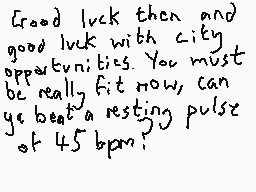 Good luck then and
good luck with city
opportunities. You must
be really fit now, can
ya beat a resting pulse
of 45 bpm?